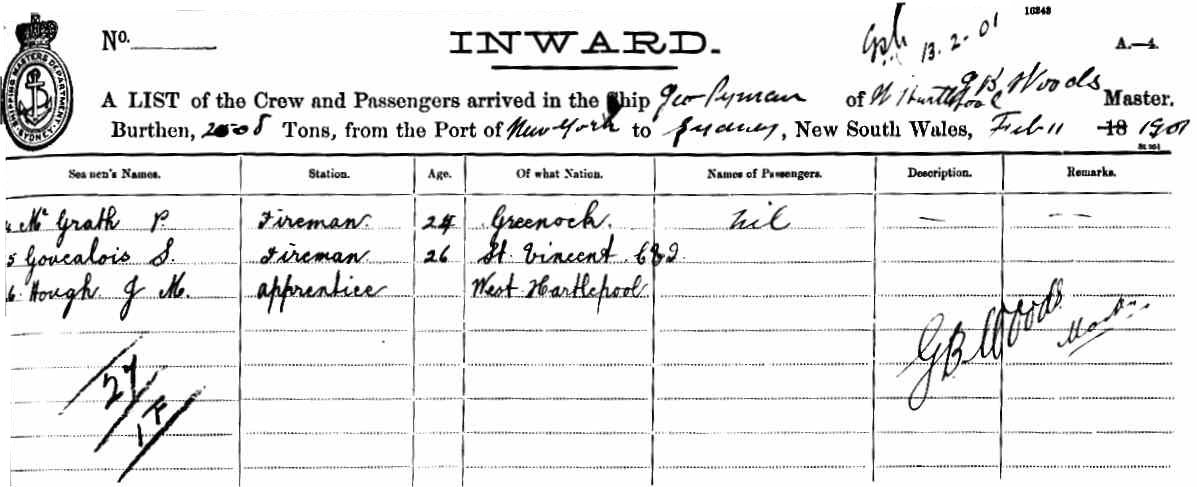 10343
No.
INWARD.
13.2.01
A.—4.
SHIPPING MASTERS DEPARTMENT SYDNEY
G B Woods
A LIST of the Crew and Passengers arrived in the Ship Geo Pyman of W Hartlepool Master.
Burthen, 2508 Tons, from the Port of New York to Sydney, New South Wales, Feb 11 18 1901
Seamen's Names. Station. Age. Of what Nation. Names of Passengers. Description. Remarks.
4 Mc Grath P. Fireman. 24 Greenock. nil — — —
5 Goucalois S. Fireman 26 St. Vincent C&D.
6 Hough J M. apprentice West Hartlepool
G B Woods
Master
27
1 F